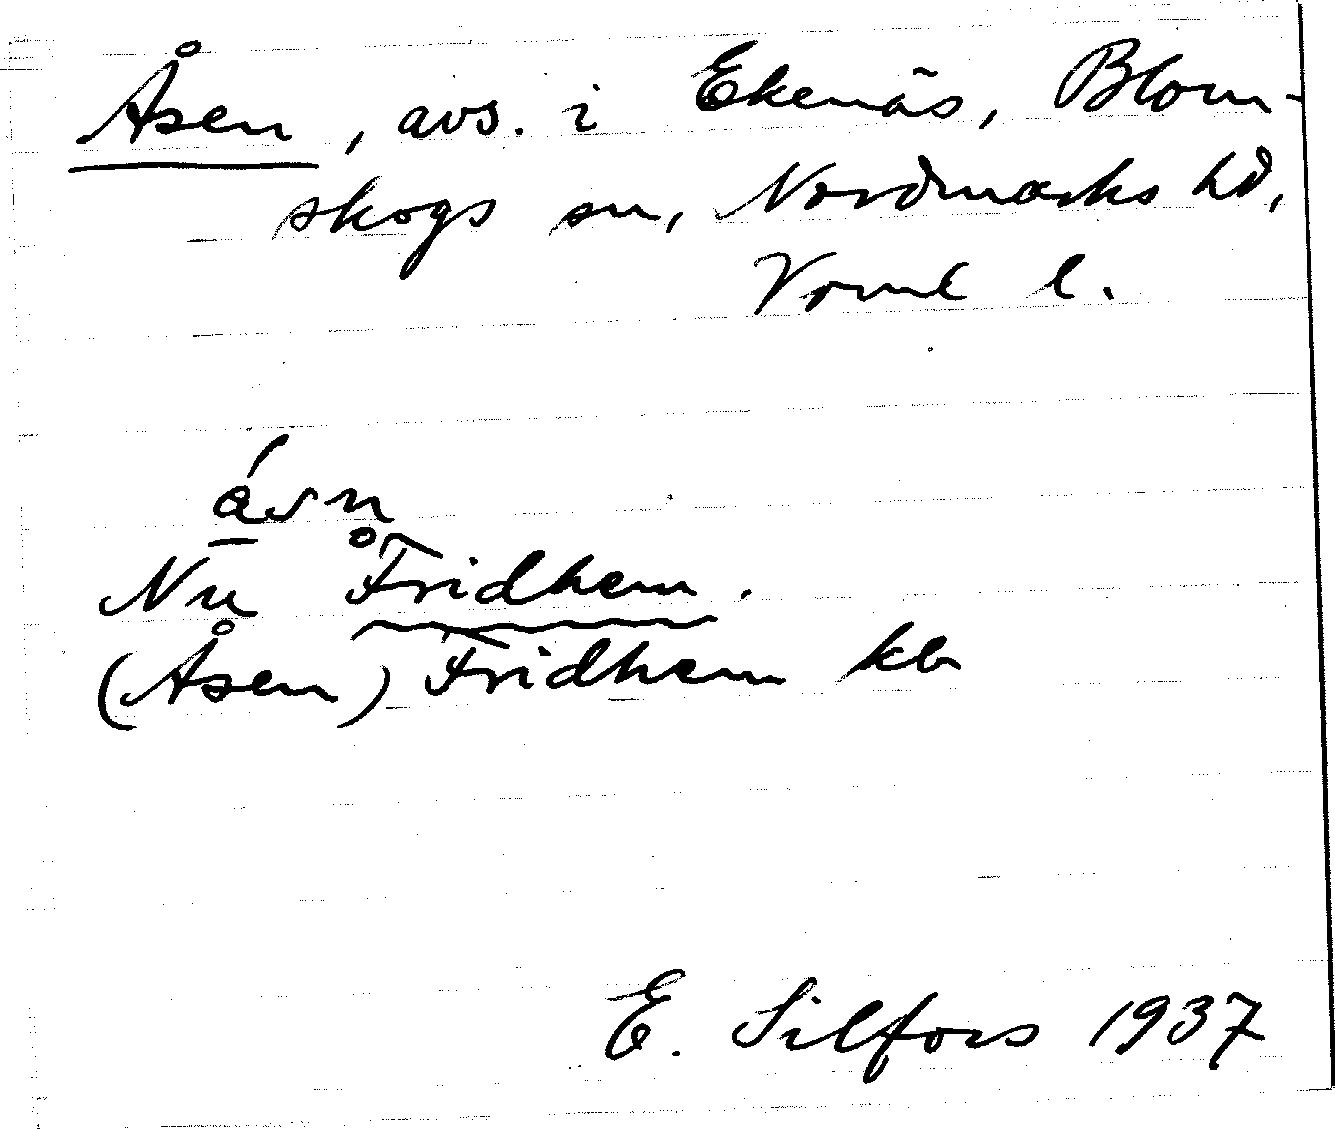 Åsen, avs. i Ekenäs, Blom-
skogs sn, Nordmarks hd,
Värml l.
Nu Fridhem.
(Åsen) Fridhem kb
E. Silfors 1937